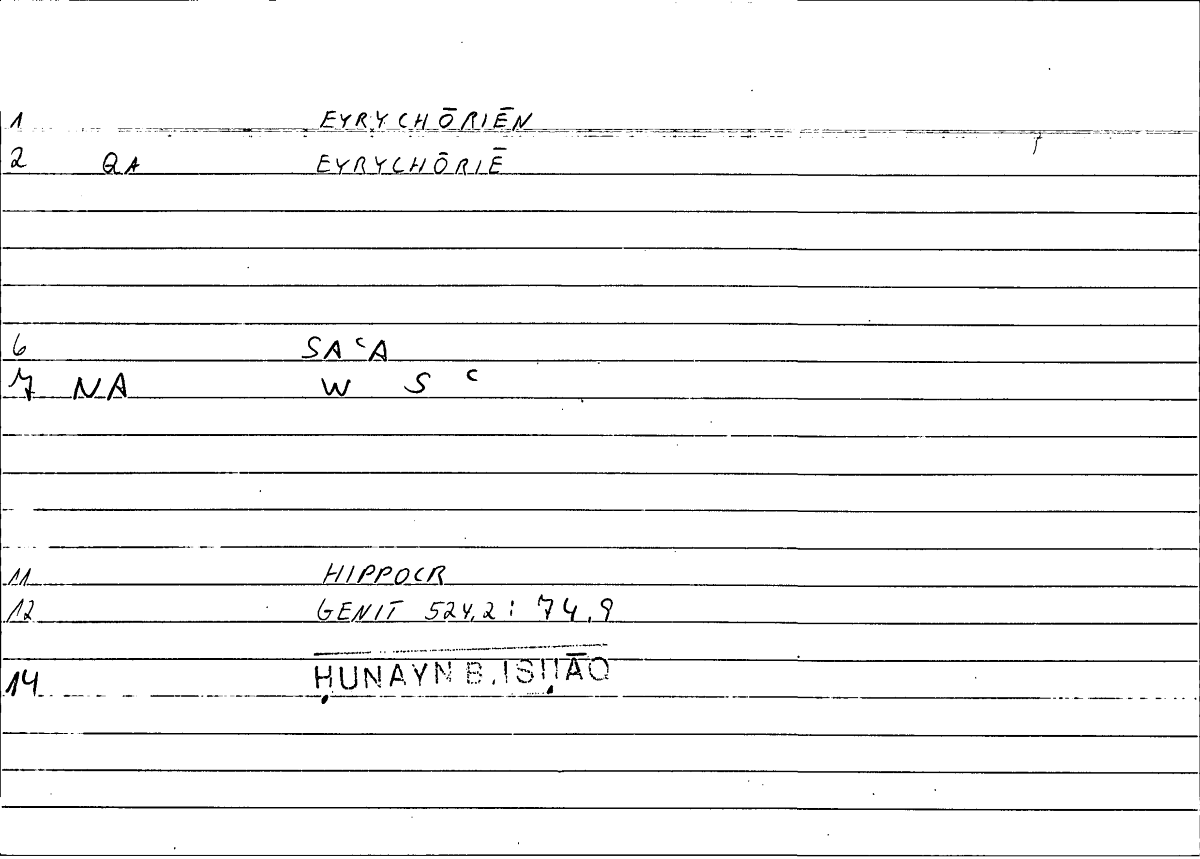 1 EYRYCHŌRIĒN
2 QA EYRYCHŌRIĒ
6 SAᶜA
7 NA W S ᶜ
11 HIPPOCR
12 GENIT 524,2 : 74,9
14 ḤUNAYN B. ISḤĀQ